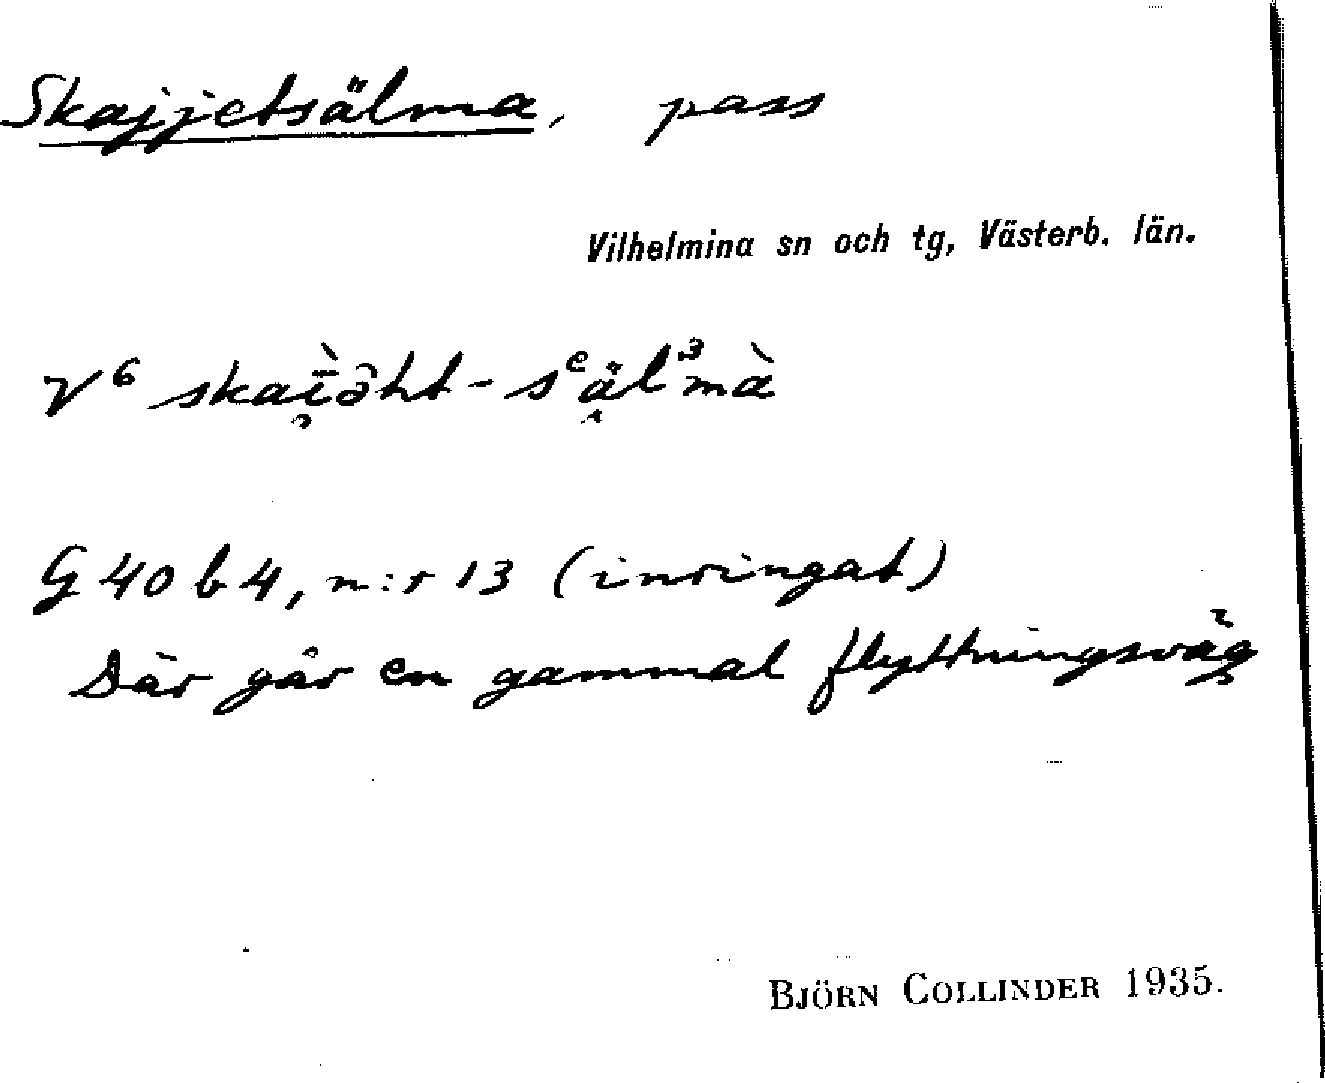 Skajjetsälma, pass
Vilhelmina sn och tg, Västerb. län.
V⁶ skaī̯̀ə̑ht-sᵉäl³mà
G 40 b 4, n:r 13 (inringat)
Där går en gammal flyttningsväg
BJÖRN COLLINDER 1935.